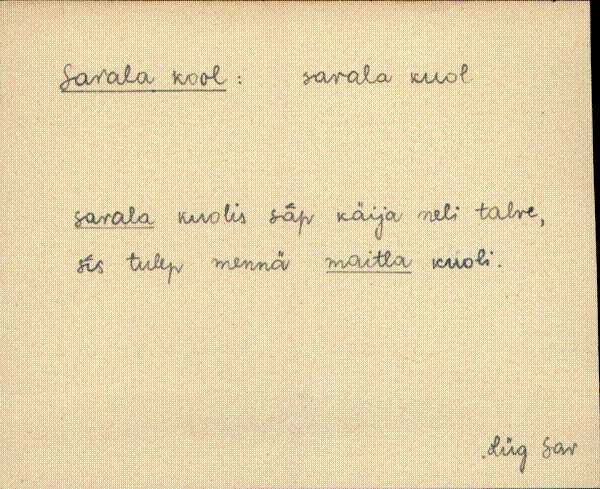 Sarala kool : sarala kuol
sarala kuolis sā̭p käija neli talve,
sīs tulep mennä maitla kuoli.
Lüg Sar